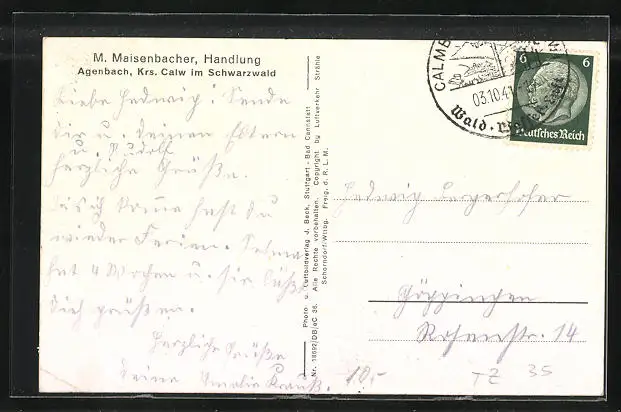 M. Maisenbacher, Handlung
Agenbach, Krs. Calw im Schwarzwald
Liebe Hedwig! Sende
dir u. deinen Eltern
u. Rudolf
herzliche Grüße.
hast du
wieder Ferien.
hat 4 Wochen u. sie läßt
dich grüßen.
Herzliche Grüße
deine Amalie Krauß.
Photo u. Luftbildverlag J. Beck, Stuttgart - Bad Cannstatt
Nr. 18692/DB/eC 36. Alle Rechte vorbehalten. Copyright by Luftverkehr Strähle
Schorndorf-Wttbg. Freig. d. R. L. M.
CALMB
03.10.41
Wald
6 6
Deutsches Reich
Hedwig
Göppingen
Rosenstr. 14
10,-
TZ 35